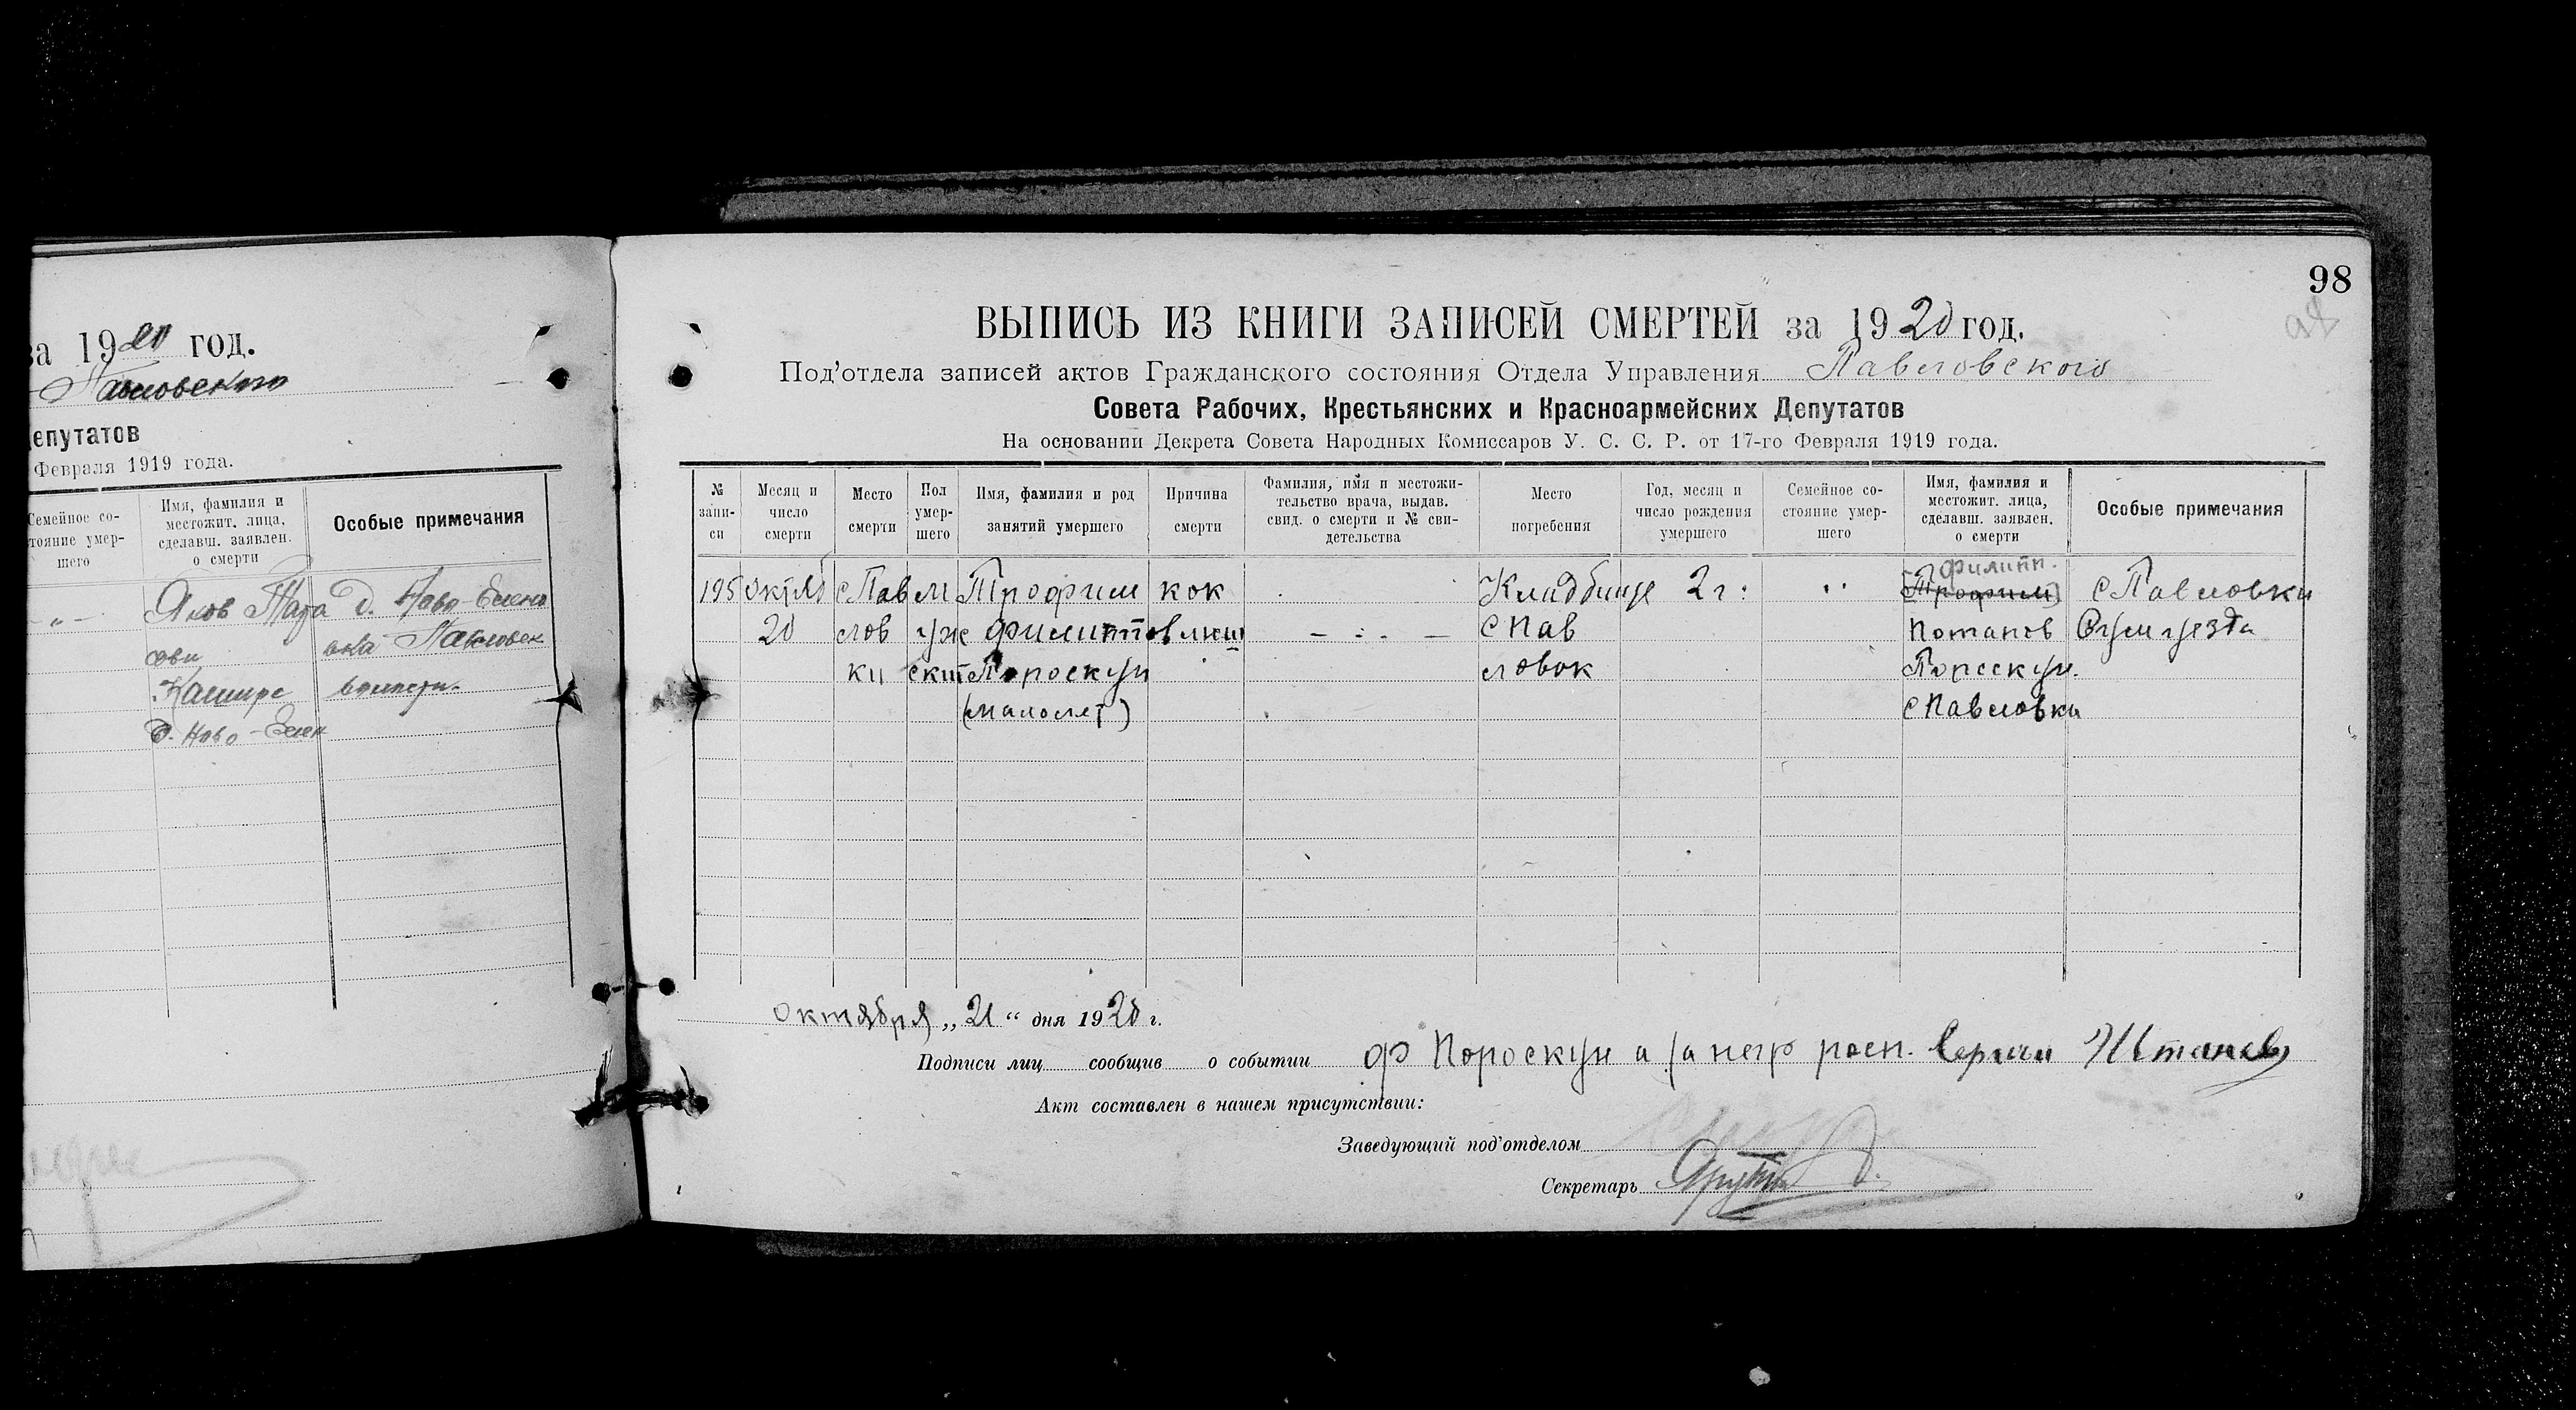 за 1920 год.
Павловского
Депутатов
Февраля 1919 года.
Семейное со-
стояние умер-
шего
Имя, фамилия и
местожит. лица,
сделавш. заявлен.
о смерти
Особые примечания
- „ -
Яков
Д. Ново-Елено
овка Павловск
Кашире
волости.
Д. Ново-Елен
98
98
ВЫПИСЬ ИЗ КНИГИ ЗАПИСЕЙ СМЕРТЕЙ за 1920 год.
Под'отдела записей актов Гражданского состояния Отдела Управления Павловского
Совета Рабочих, Крестьянских и Красноармейских Депутатов
На основании Декрета Совета Народных Комиссаров У. С. С. Р. от 17-го Февраля 1919 года.
№
запи-
си
Месяц и
число
смерти
Место
смерти
Пол
умер-
шего
Имя, фамилия и род
занятий умершего
Причина
смерти
Фамилия, имя и местожи-
тельство врача, выдав.
свид. о смерти и № сви-
детельства
Место
погребения
Год, месяц и
число рождения
умершего
Семейное со-
стояние умер-
шего
Имя, фамилия и
местожит. лица,
сделавш. заявлен.
о смерти
Особые примечания
195
20
с Пав
лов
ки
м
уж
ской
Трофим
Филиппов
Пороскун
(малолет)
кок
люш
Кладбище
с Пав
ловок
2 г.
Филипп.
Трофим
Потапов
Пороскун.
с Павловки
с Павловки
уезда
Октября „21“ дня 1920 г.
Подписи лиц сообщив о событии Ф Пороскун а за негр росп. Сергей
Акт составлен в нашем присутствии:
Заведующий под'отделом
Секретарь